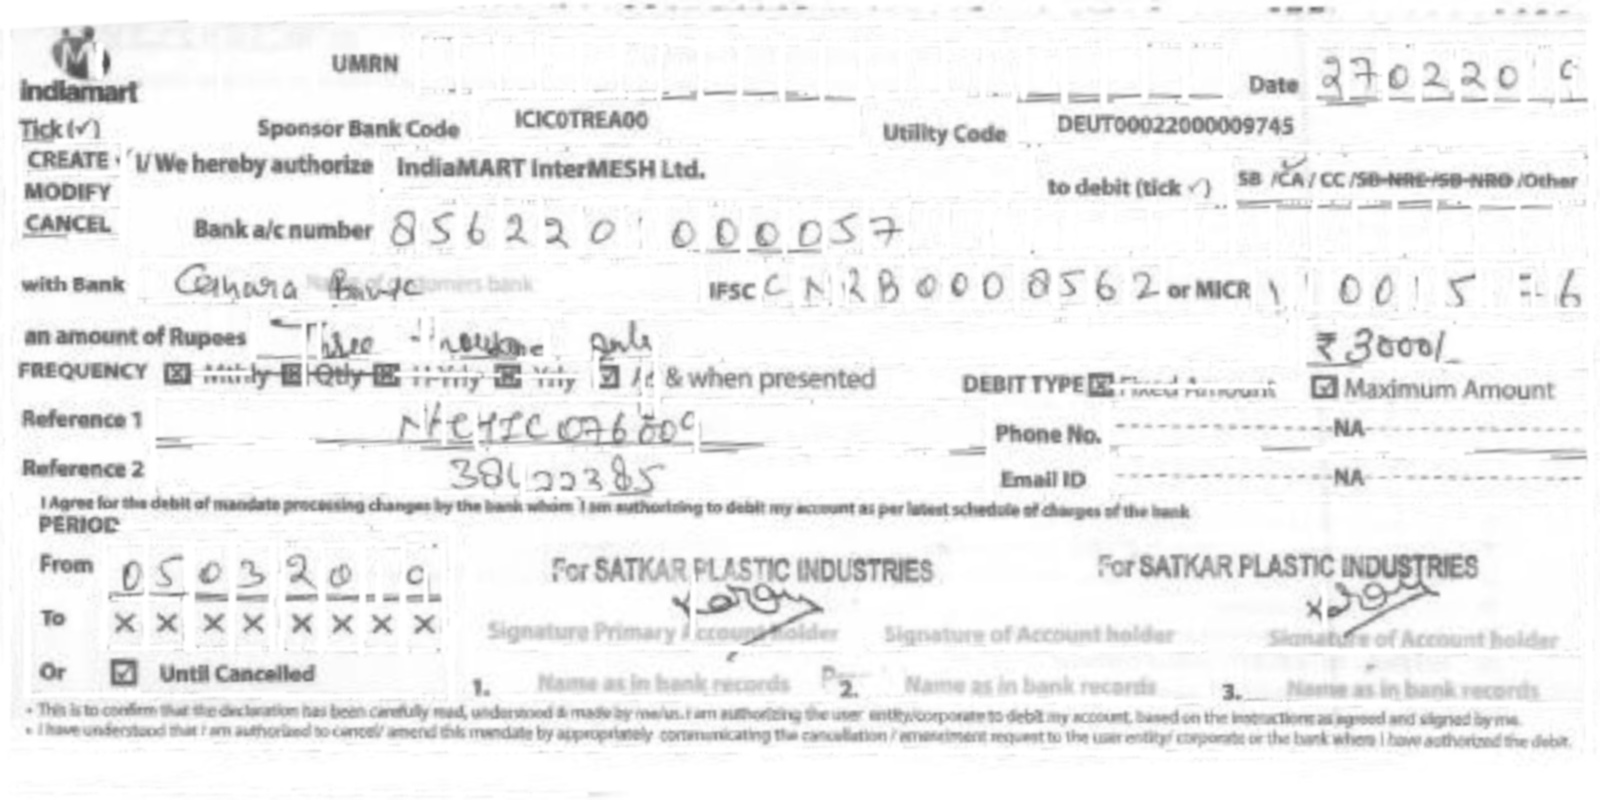 indiamart
UMRN
Date 270220
Tick (✓) Sponsor Bank Code ICIC0TREA00 Utility Code DEUT00022000009745
CREATE I/ We hereby authorize IndiaMART InterMESH Ltd. to debit (tick ✓) SB /CA / CC /SB-NRE /SB-NRO /Other
MODIFY
CANCEL Bank a/c number 856220 000057
with Bank Canara Bank Name of customers bank IFSC CNRB0008562 or MICR
an amount of Rupees Three Thousand only ₹ 3000/-
FREQUENCY Mthly Qtly H-Yrly Yrly & when presented DEBIT TYPE Fixed Amount Maximum Amount
Reference 1 Phone No. NA
Reference 2 Email ID NA
I Agree for the debit of mandate processing charges by the bank whom I am authorizing to debit my account as per latest schedule of charges of the bank
PERIOD
From 050320 For SATKAR PLASTIC INDUSTRIES For SATKAR PLASTIC INDUSTRIES
To X X X X X X X X Signature Primary Account holder Signature of Account holder Signature of Account holder
Or Until Cancelled 1. Name as in bank records 2. Name as in bank records 3. Name as in bank records
• This is to confirm that the declaration has been carefully read, understood & made by me/us. I am authorizing the user entity/corporate to debit my account, based on the instructions as agreed and signed by me.
• I have understood that I am authorized to cancel/ amend this mandate by appropriately communicating the cancellation / amendment request to the user entity/ corporate or the bank where I have authorized the debit.